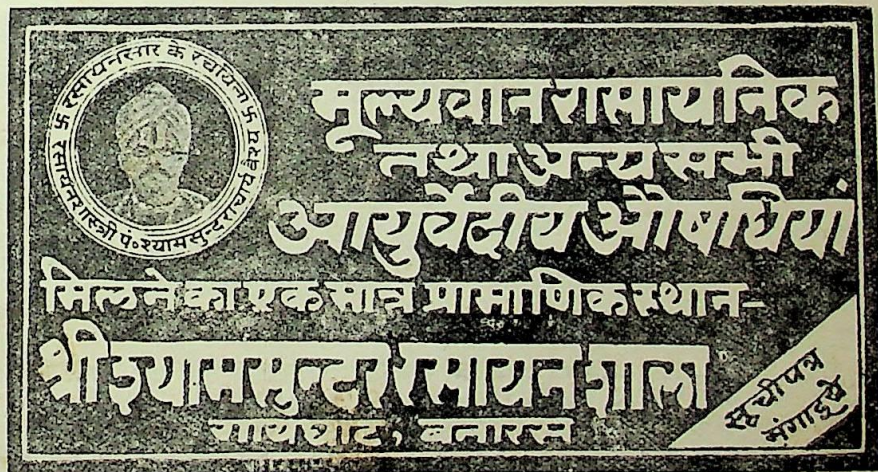 卐 रसायनसार के रचयिता 卐
रसायनशास्त्री पं॰ श्यामसुन्दराचार्य वैश्य
मूल्यवान रासायनिक
तथा अन्य सभी
आयुर्वेदीय औषधियां
मिलने का एक मात्र प्रामाणिक स्थान–
श्री श्यामसुन्दर रसायन शाला
गायघाट, बनारस
सूचीपत्र
मंगाइये